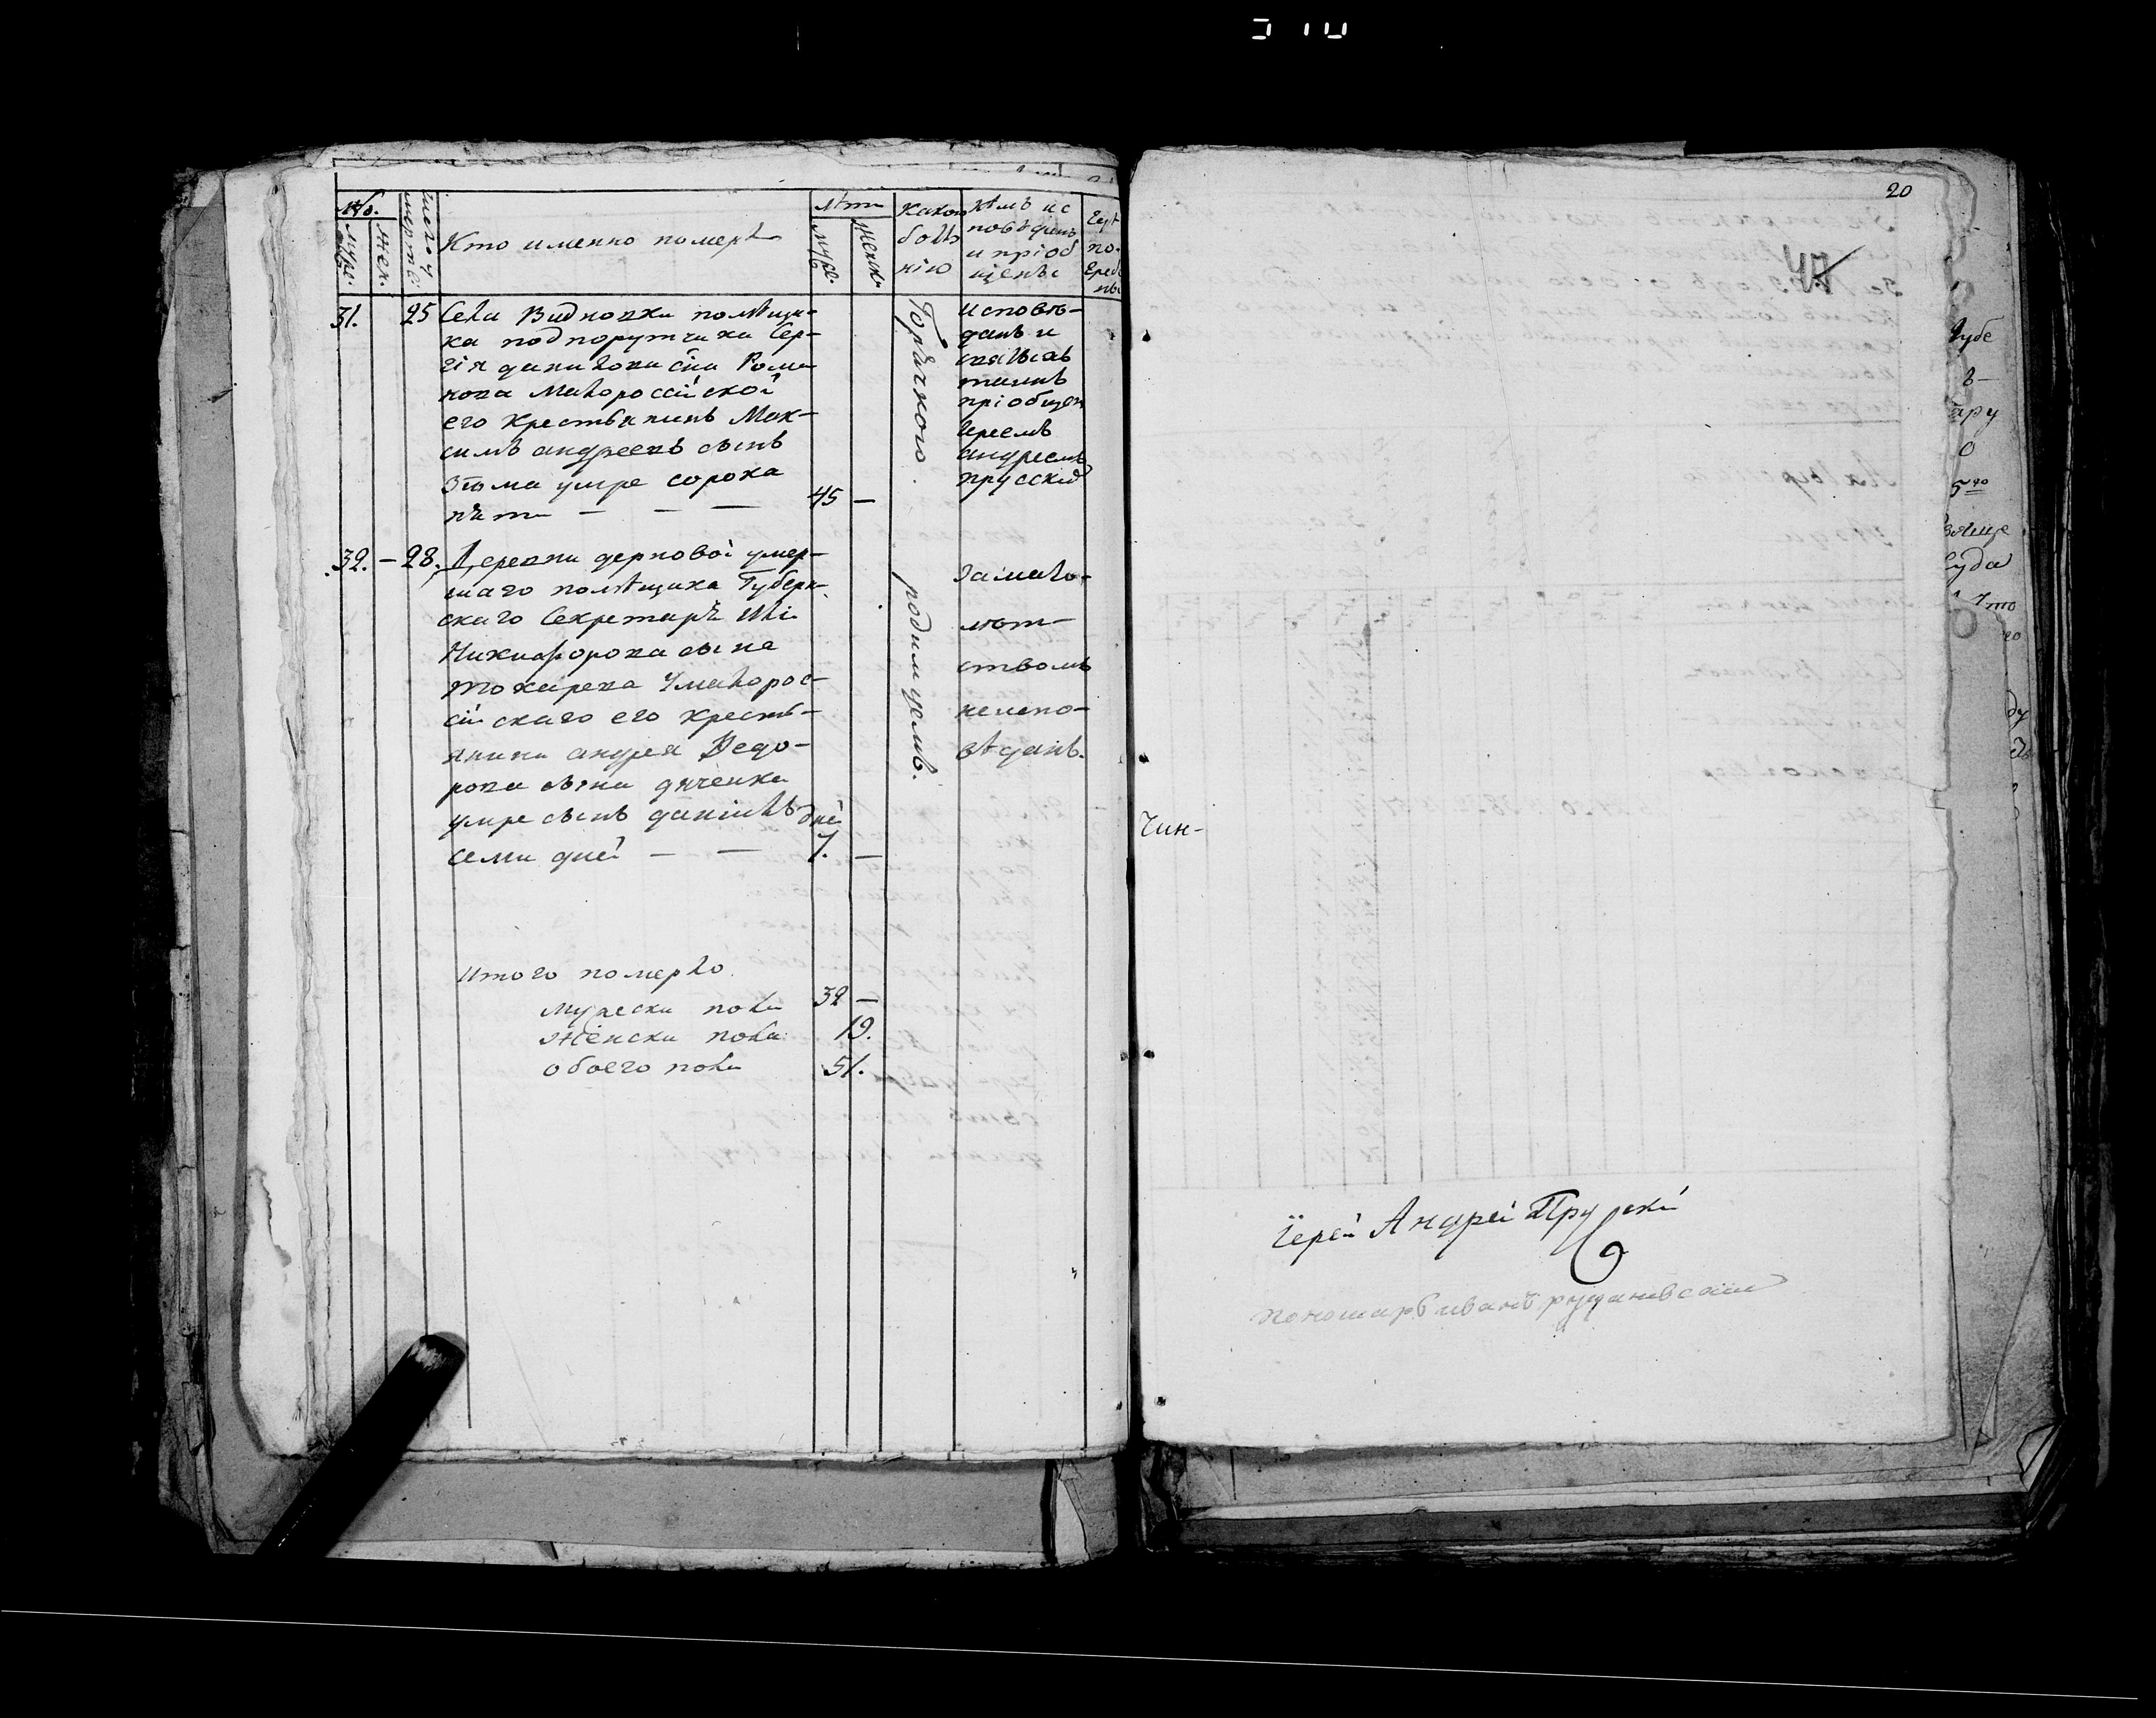 20
47
№.
муж.
жен.
число
смерте
Кто именно померъ
лѣта
муж.
женск.
Какою
болѣ
нію
кѣмъ ис
повѣданъ
и пріоб
щенъ
по-
гребе
31.
25
Села Видновки помѣщи-
ка подпорутчика Сер-
гія данилова сна Рома
нова Малороссійской
его крестьянинъ Мак-
симъ андреевъ сынъ
умре сорока
пѧти — — —
45 —
Горѧчкою.
исповѣ-
данъ и
свѧтыхъ
таинъ
пріобщен
Іереемъ
андреемъ
прусским
32. — 28.
Деревни дерновой умер-
шаго помѣщика Губерн-
скаго Секретарѧ Иліи
Никифорова сына
токарева Умалорос-
сійскаго его кресть-
янина андрея Федо-
рова сына дяченка
умре сынъ даніилъ
семи дней — —
дней
7. —
родимцемъ.
замало-
лѣт-
ствомъ
неиспо-
вѣданъ.
Итого померло
мужеска пола 32 —
женска пола 19.
обоего пола 51.
Чин-
Іерей Андрей Прускій
Пономарь иванъ